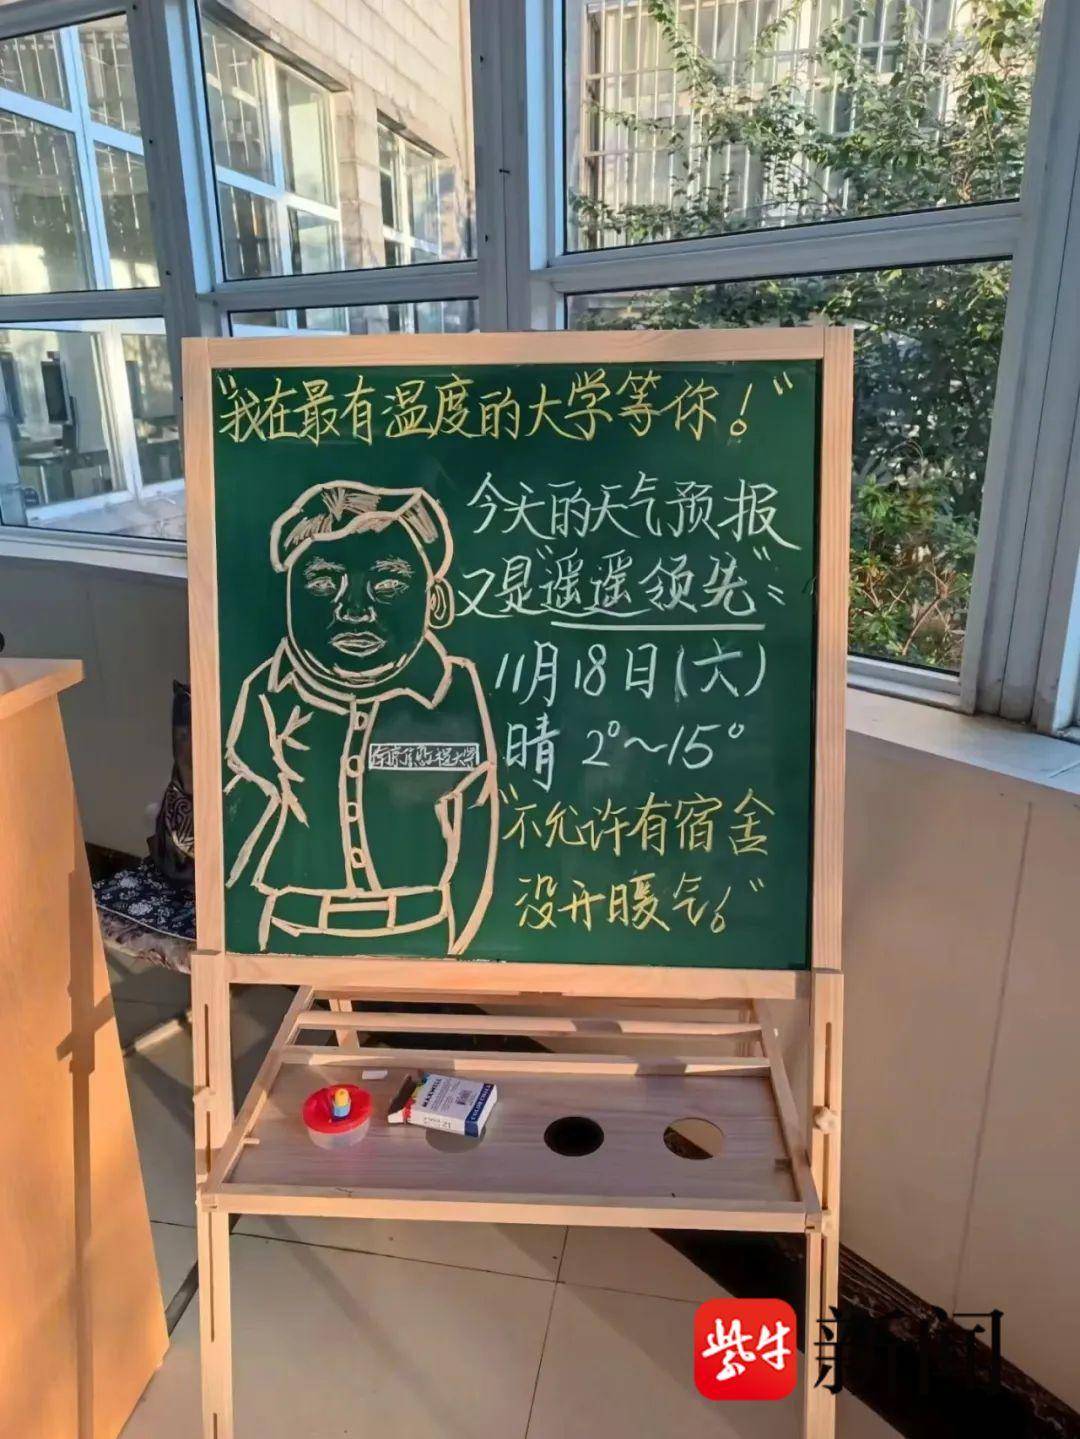 "我在最有温度的大学等你!"
今天的天气预报
又是"遥遥领先"
11月18日(六)
晴 2°~15°
"不允许有宿舍
没开暖气!"
MAXWELL
紫牛新闻